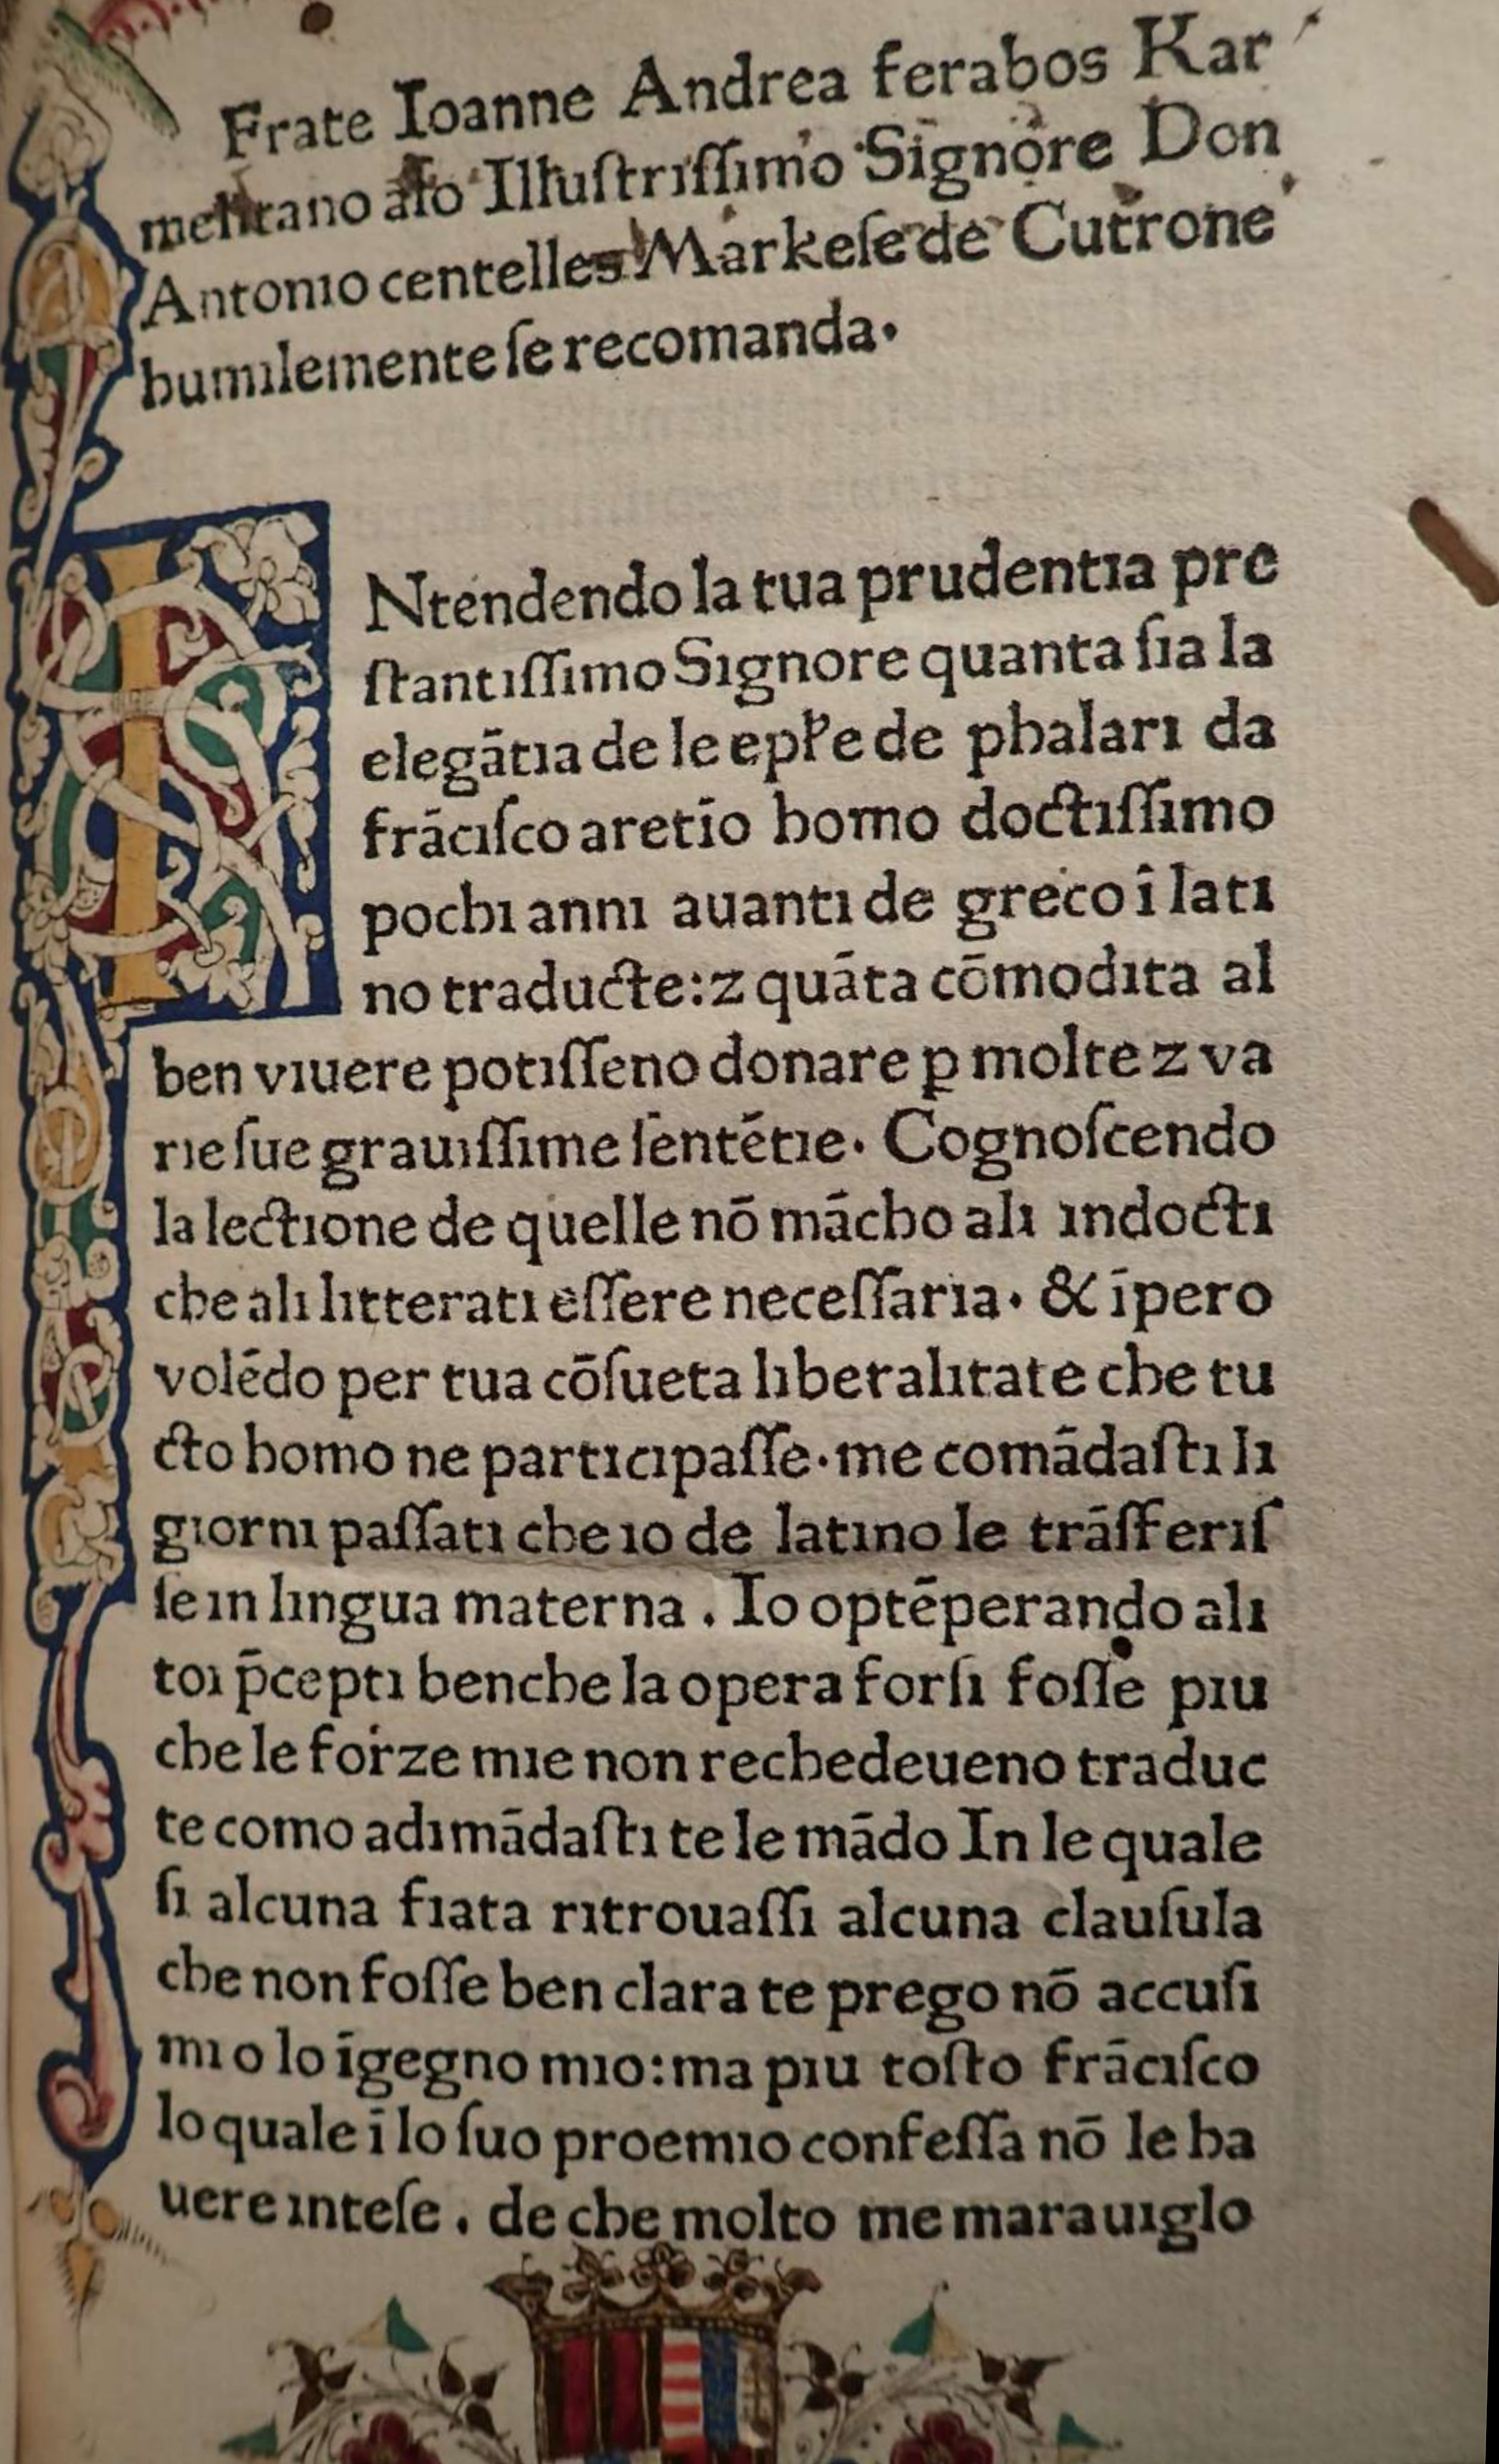 Frate Ioanne Andrea ferabos Kar
melitano alo Illustrissimo Signore Don
Antonio centelles Markese de Cutrone
humilemente se recomanda.
INtendendo la tua prudentia pre
ſtantiſſimo Signore quanta ſia la
elegātia de le epłe de phalari da
frāciſco aretīo homo doctiſſimo
pochi anni auanti de greco ī lati
no traducte: ⁊ quāta cōmodita al
ben viuere potiſſeno donare ꝑ molte ⁊ va
rie ſue grauiſſime ſentētie. Cognoſcendo
la lectione de quelle nō mācho ali indocti
che ali litterati eſſere neceſſaria. & īpero
volēdo per tua cōſueta liberalitate che tu
cto homo ne participaſſe. me comādaſti li
giorni paſſati che io de latino le trāſferiſ
ſe in lingua materna. Io optēperando ali
toi p̄cepti benche la opera forſi foſſe piu
che le forze mie non rechedeueno traduc
te como adimādaſti te le mādo In le quale
ſi alcuna fiata ritrouaſſi alcuna clauſula
che non foſſe ben clara te prego nō accuſi
mi o lo īgegno mio: ma piu toſto frāciſco
lo quale ī lo ſuo proemio confeſſa nō le ha
uere inteſe. de che molto me marauiglo